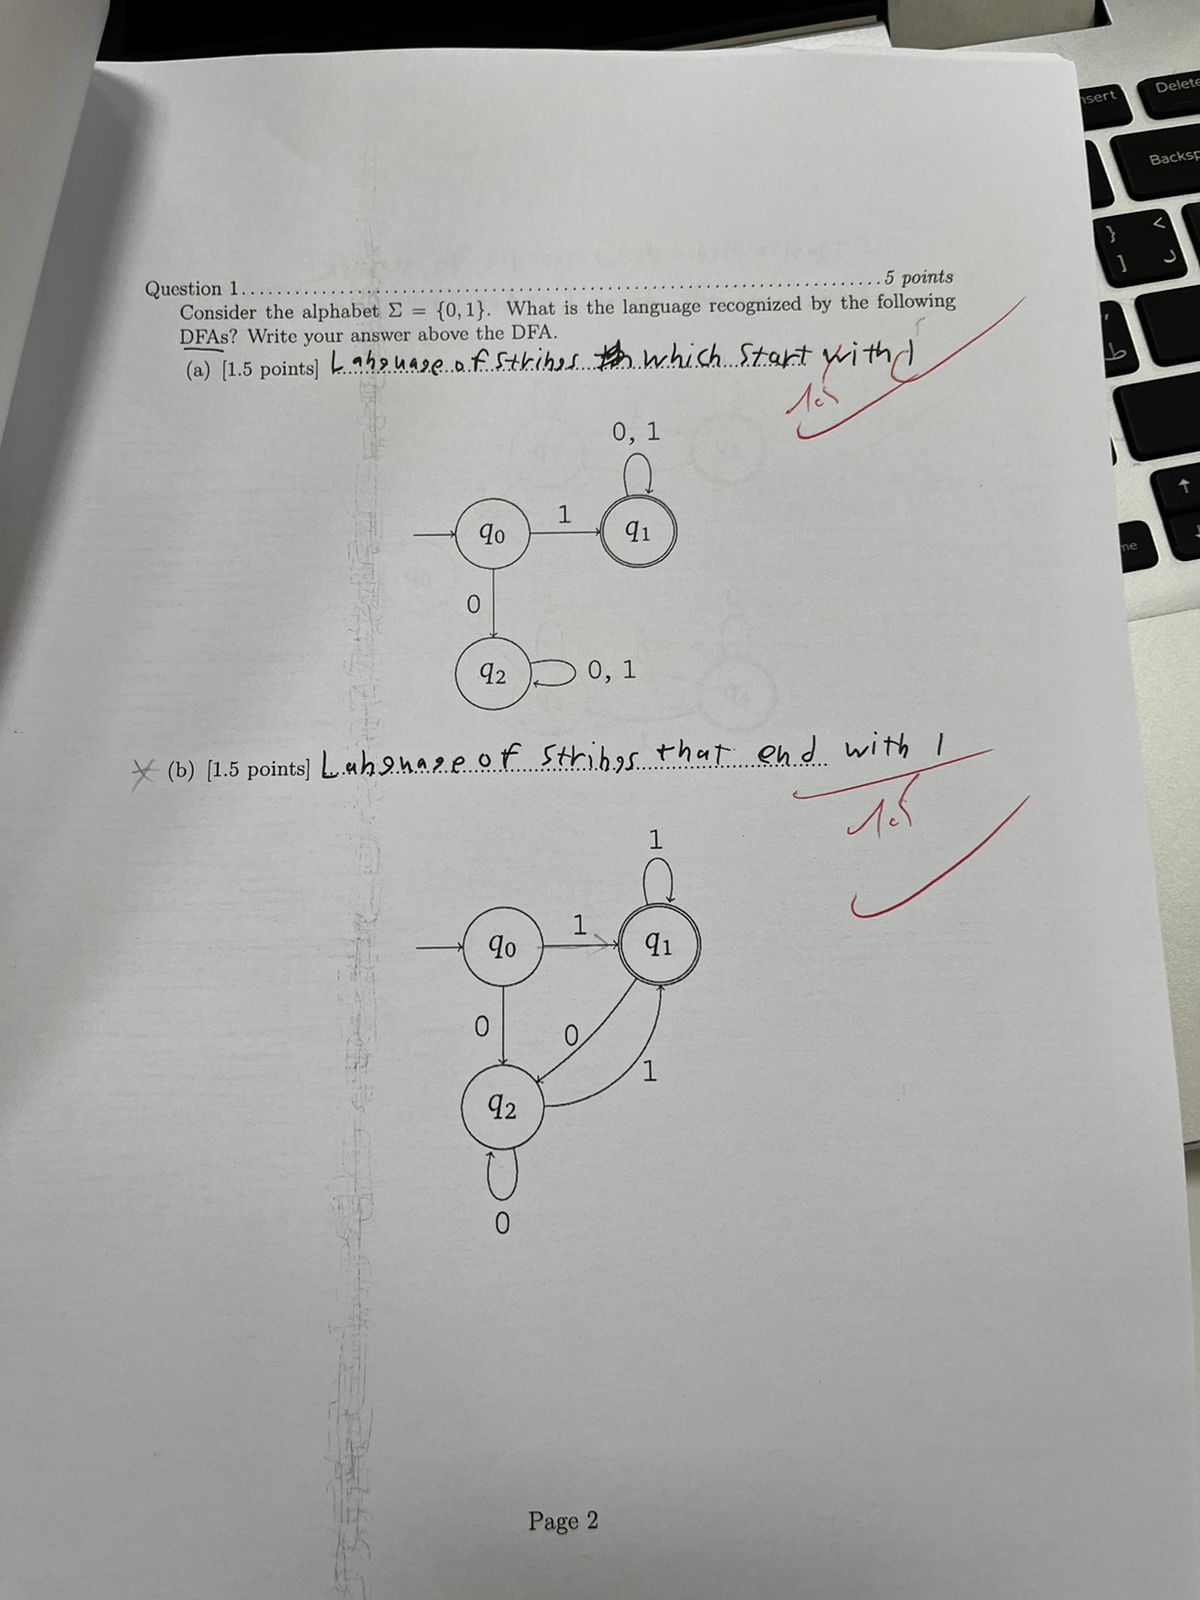 nsert
Delete
Backsp
Question 1..........5 points
Consider the alphabet Σ = {0, 1}. What is the language recognized by the following
DFAs? Write your answer above the DFA.
(a) [1.5 points] Language of strings which start with 1
1.5
0, 1
q0
1
q1
0
q2
0, 1
(b) [1.5 points] Language of strings that end with 1
1.5
1
q0
1
q1
0
0
1
q2
0
Page 2